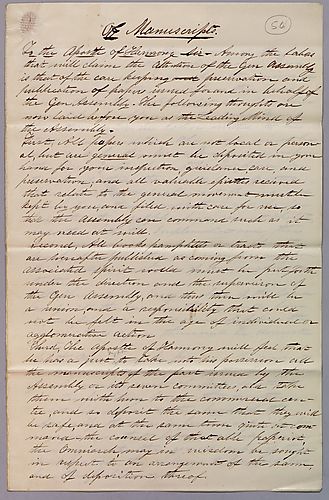 Of Manuscripts.
54
To the Apostle of Harmony Sir Among the labors
that will claim the attention of the Gen Assembly
is that of the care keeping and preservation and
publication of papers issued for and in behalf of
the Gen Assembly. The following thoughts are
now laid before you as the Leading Mind of
the Assembly.
First, All papers which are not local or person
al, but are general must be deposited in your
hands for your inspection, guidance care, and
preservation, and all valuable received
that relate to the general movement must be
kept by you and filed with care for use, so
that the Assembly can command such as it
may need at will.
Second, All books pamphlets or tracts that
are hereafter published as coming from the
associated spirit world must be put forth
under the direction and the supervision of
the Gen Assembly, and thus there will be
a union and a responsibility that could
not be felt in the age of individual or
agglomerative action
Third, The Apostle of Harmony will feel that
he has a just to take into his possession all
the manuscripts of the past issued by the
Assembly or its seven committees, also take
them with him to the commercial cen
tre, and so deposit the same that they will
be safe and at the same time quite at com
mand the counsel of that able
the may in wisdom be sought
in respect to an arrangement of the same,
and of disposition thereof.